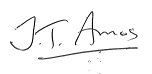 J.T. Amos